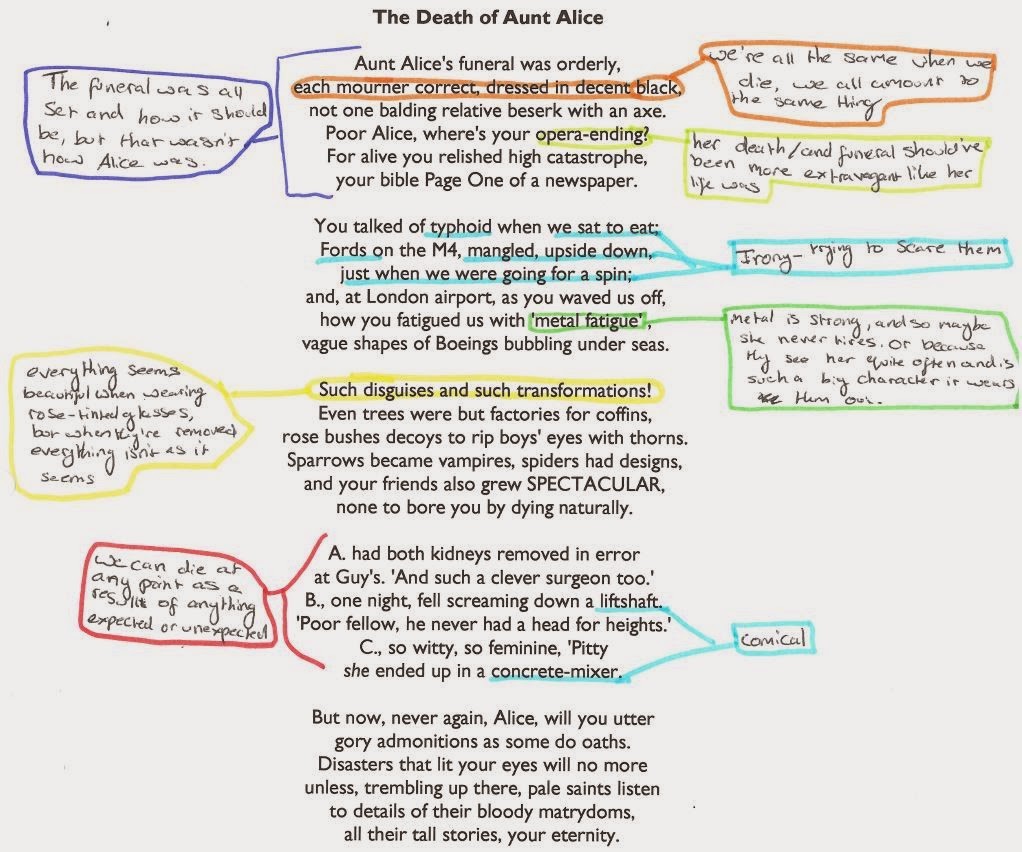 The Death of Aunt Alice
Aunt Alice's funeral was orderly,
each mourner correct, dressed in decent black,
not one balding relative beserk with an axe.
Poor Alice, where's your opera-ending?
For alive you relished high catastrophe,
your bible Page One of a newspaper.
The funeral was all
set and how it should
be, but that wasn't
how Alice was.
we're all the same when we
die, we all amount to
the same thing
her death/and funeral should've
been more extravegant like her
life was
You talked of typhoid when we sat to eat;
Fords on the M4, mangled, upside down,
just when we were going for a spin;
and, at London airport, as you waved us off,
how you fatigued us with 'metal fatigue',
vague shapes of Boeings bubbling under seas.
Irony- trying to scare them
Metal is strong, and so maybe
she never tires. Or because
they see her quite often and is
such a big character it wears
them out.
Such disguises and such transformations!
Even trees were but factories for coffins,
rose bushes decoys to rip boys' eyes with thorns.
Sparrows became vampires, spiders had designs,
and your friends also grew SPECTACULAR,
none to bore you by dying naturally.
everything seems
beautiful when wearing
rose-tinted glasses,
but when they're removed
everything isn't as it
seems
A. had both kidneys removed in error
at Guy's. 'And such a clever surgeon too.'
B., one night, fell screaming down a liftshaft.
'Poor fellow, he never had a head for heights.'
C., so witty, so feminine, 'Pitty
she ended up in a concrete-mixer.
we can die at
any point as a
result of anything
expected or unexpected
comical
But now, never again, Alice, will you utter
gory admonitions as some do oaths.
Disasters that lit your eyes will no more
unless, trembling up there, pale saints listen
to details of their bloody matrydoms,
all their tall stories, your eternity.